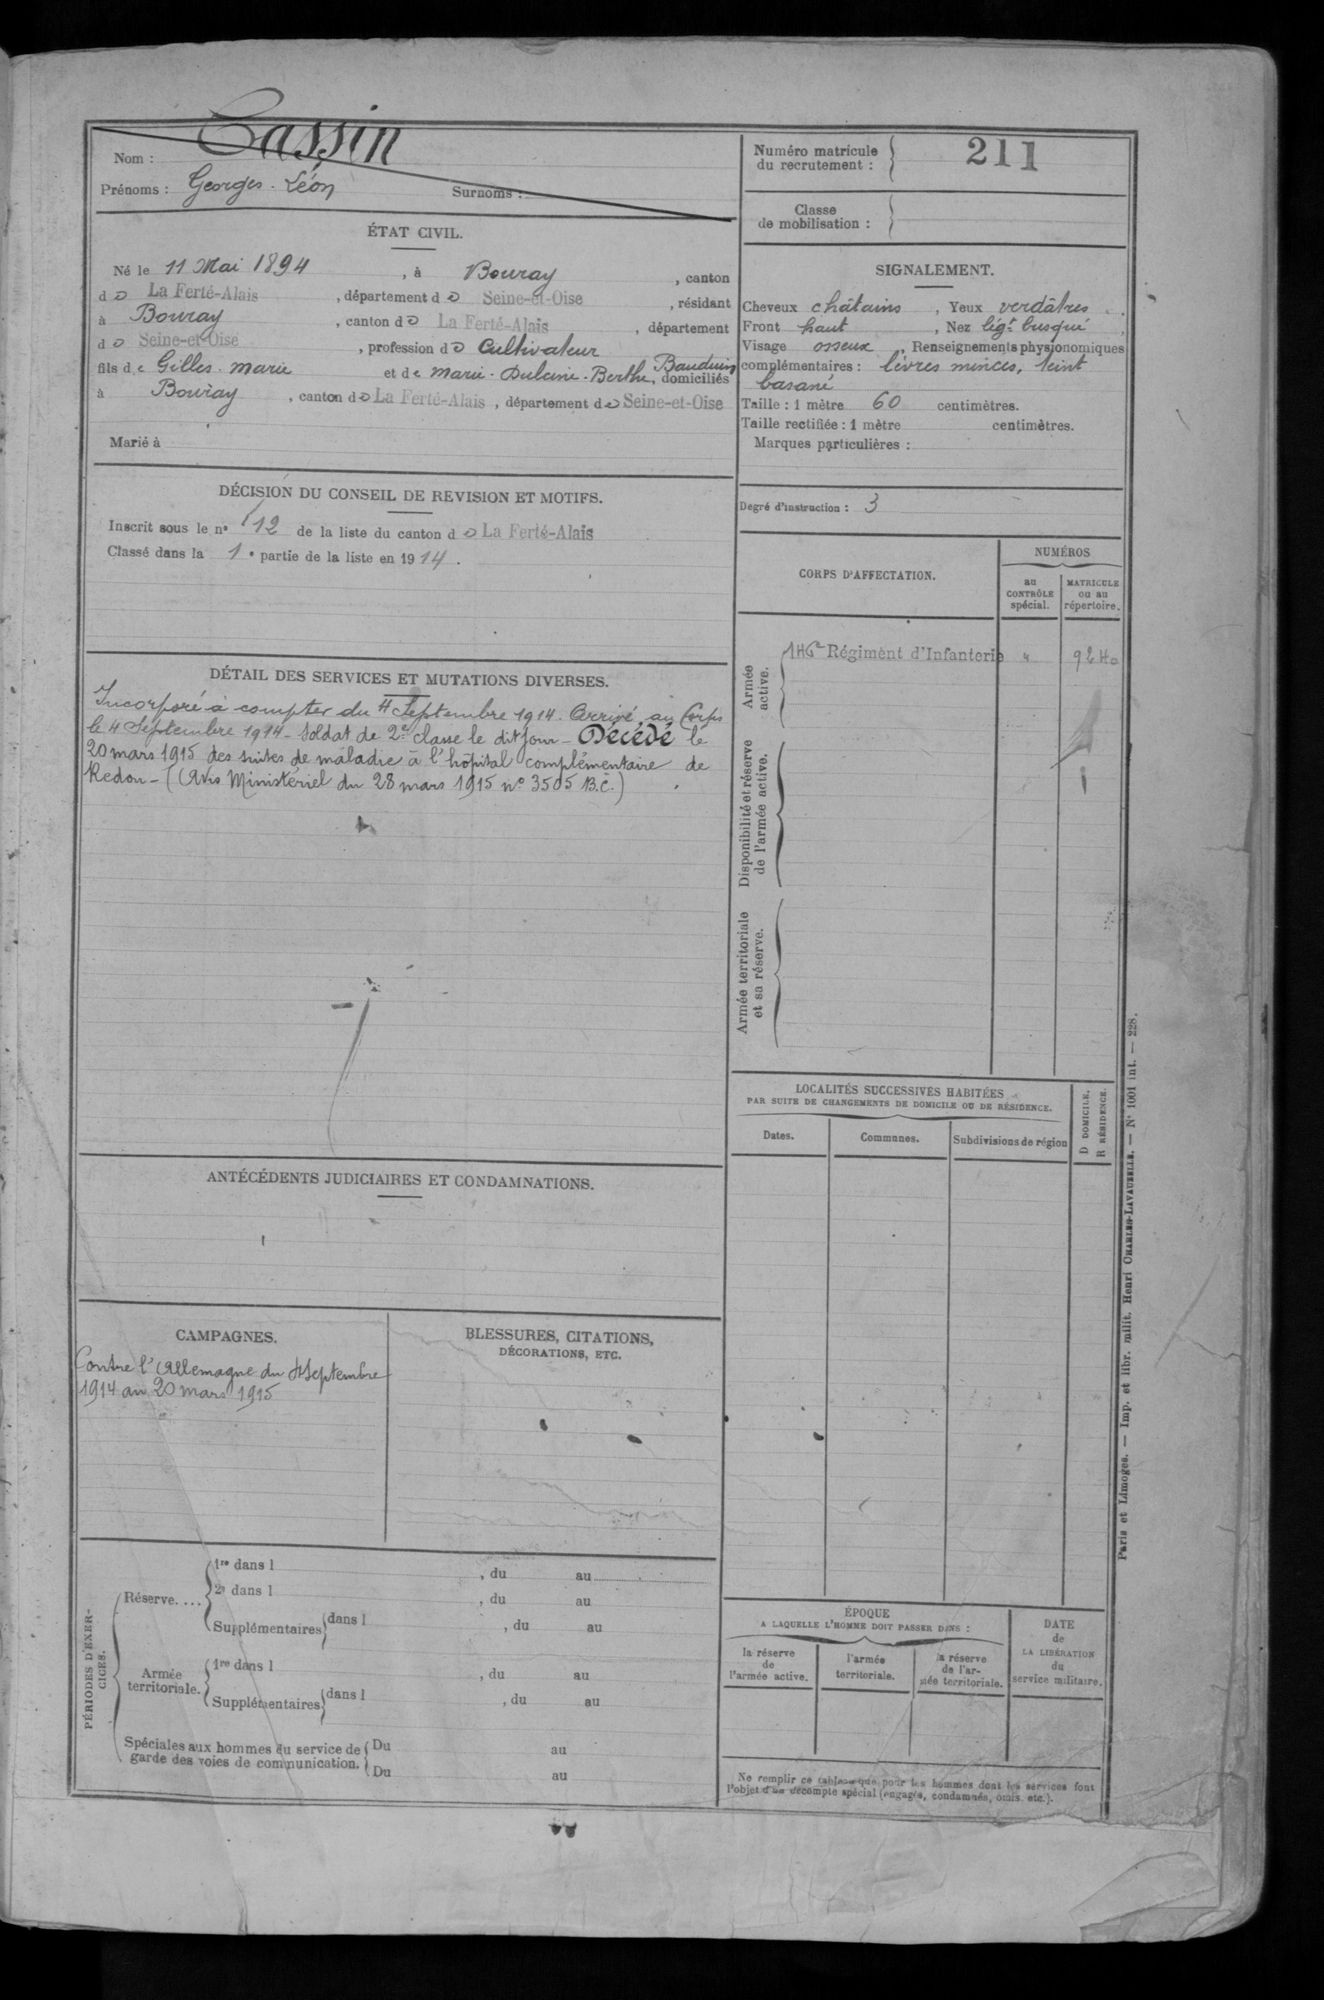 Nom : Cassin
Prénoms : Georges - Léon Surnoms :
ÉTAT CIVIL.
Né le 11 Mai 1894, à Bouray, canton
de La Ferté-Alais, département de Seine-et-Oise, résidant
à Bouray, canton de La Ferté-Alais, département
de Seine-et-Oise, profession de Cultivateur
fils de Gilles - Marie et de Marie - Dulcine - Berthe Bauduin, domiciliés
à Bouray, canton de La Ferté-Alais, département de Seine-et-Oise
Marié à
DÉCISION DU CONSEIL DE REVISION ET MOTIFS.
Inscrit sous le n° 12 de la liste du canton de La Ferté-Alais
Classé dans la 1e partie de la liste en 1914.
DÉTAIL DES SERVICES ET MUTATIONS DIVERSES.
Incorporé à compter du 4 Septembre 1914. Arrivé au Corps
le 4 Septembre 1914 - Soldat de 2e classe le dit jour - Décédé le
20 mars 1915 des suites de maladie à l'hôpital complémentaire de
Redon - (Avis Ministériel du 28 mars 1915 n° 3505 B.C.)
ANTÉCÉDENTS JUDICIAIRES ET CONDAMNATIONS.
CAMPAGNES.
Contre l'Allemagne du 4 Septembre
1914 au 20 mars 1915
BLESSURES, CITATIONS,
DÉCORATIONS, ETC.
PÉRIODES D'EXER-
CICES.
Réserve....
1re dans l , du au
2e dans l , du au
Supplémentaires dans l , du au
Armée
territoriale.
1re dans l , du au
Supplémentaires dans l , du au
Spéciales aux hommes du service de
garde des voies de communication.
Du au
Du au
Numéro matricule
du recrutement : 211
Classe
de mobilisation :
SIGNALEMENT.
Cheveux châtains, Yeux verdâtres
Front haut, Nez légt busqué
Visage osseux, Renseignements physionomiques
complémentaires : lèvres minces, teint
basané
Taille : 1 mètre 60 centimètres.
Taille rectifiée : 1 mètre centimètres.
Marques particulières :
Degré d'instruction : 3
CORPS D'AFFECTATION.
NUMÉROS
au
CONTRÔLE
spécial.
MATRICULE
ou au
répertoire.
Armée
active.
146e Régiment d'Infanterie " 9240
Disponibilité et réserve
de l'armée active.
Armée territoriale
et sa réserve.
LOCALITÉS SUCCESSIVES HABITÉES
PAR SUITE DE CHANGEMENTS DE DOMICILE OU DE RÉSIDENCE.
Dates.
Communes.
Subdivisions de région
D DOMICILE.
R RÉSIDENCE.
ÉPOQUE
A LAQUELLE L'HOMME DOIT PASSER DANS :
la réserve
de
l'armée active.
l'armée
territoriale.
la réserve
de l'ar-
mée territoriale.
DATE
de
LA LIBÉRATION
du
service militaire.
Ne remplir ce tableau que pour les hommes dont les services font
l'objet d'un décompte spécial (engagés, condamnés, omis, etc.).
Paris et Limoges. — Imp. et libr. milit. Henri CHARLES-LAVAUZELLE. — N° 1001 int. — 228.